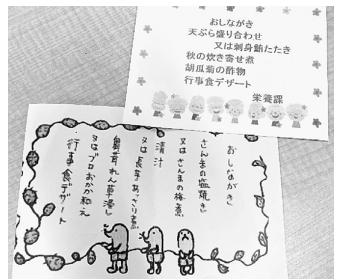 おしながき
天ぷら盛り合わせ
又は刺身鮪たたき
秋の炊き寄せ煮
胡瓜菊の酢物
行事食デザート
栄養課
おしながき
さんまの塩焼き
又はさんまの梅煮
清汁
又は長芋あっさり煮
菊花れん草浸し
又はブロおかか和え
行事食デザート